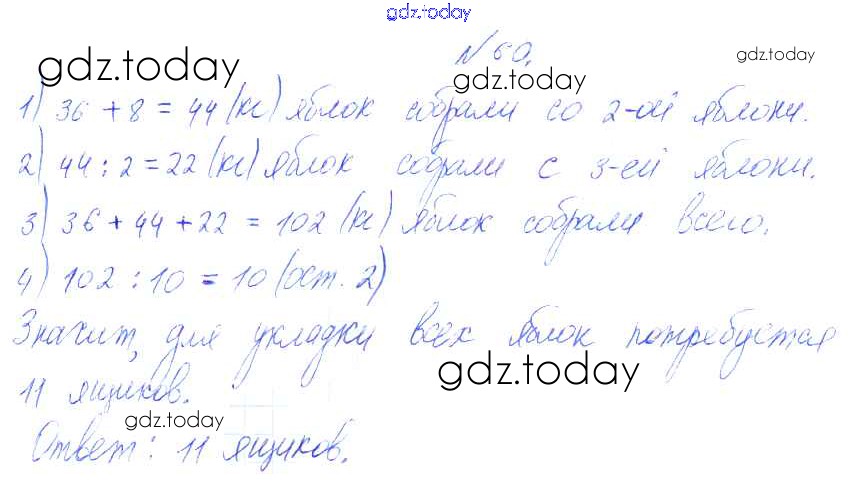 gdz.today
№60.
gdz.today
gdz.today
gdz.today
1) 36 + 8 = 44 (кг) яблок собрали со 2-ой яблони.
2) 44 : 2 = 22 (кг) яблок собрали с 3-ей яблони.
3) 36 + 44 + 22 = 102 (кг) яблок собрали всего.
4) 102 : 10 = 10 (ост. 2)
Значит, для укладки всех яблок потребуется
gdz.today
11 ящиков.
gdz.today
Ответ: 11 ящиков.